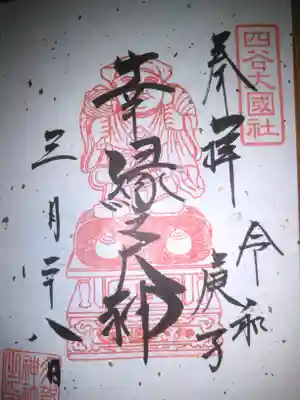 四谷大國社
奉拝
令和
庚子
幸縁大神
三月二十八日